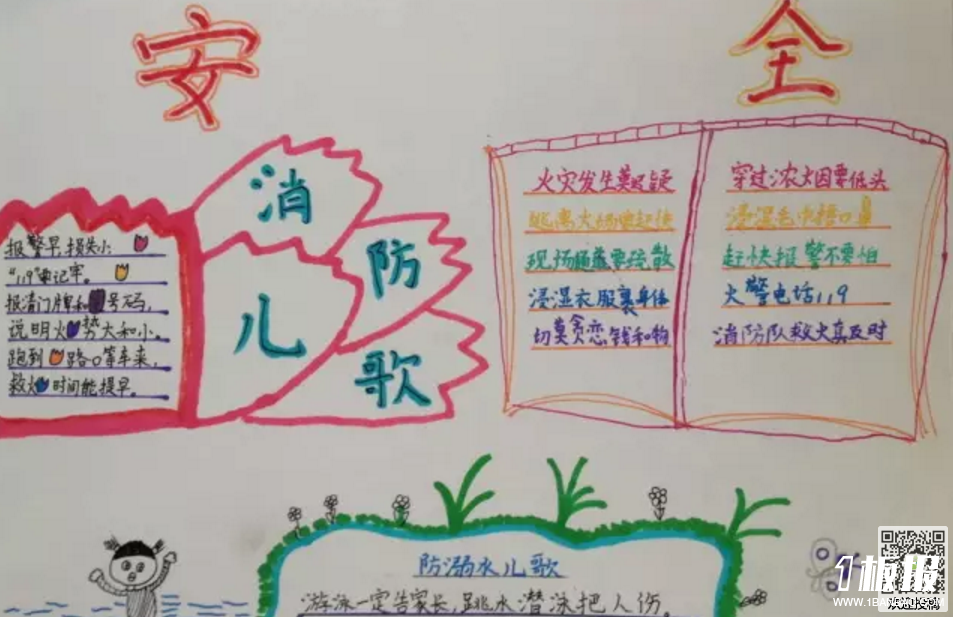 安全
消防儿歌
报警早,损失小
“119”牢记牢。
报清门牌和号码,
说明火势大和小。
跑到路口等车来,
救火时间能提早。
火灾发生莫迟疑
逃离火场要赶快
现场随意要疏散
浸湿衣服裹身体
切莫贪恋钱和物
穿过浓烟要低头
浸湿毛巾捂口鼻
赶快报警不要怕
火警电话119
消防队救火真及时
防溺水儿歌
游泳一定告家长,跳水潜泳把人伤。
1板报
WWW.1BANBAO.COM
欢迎投稿